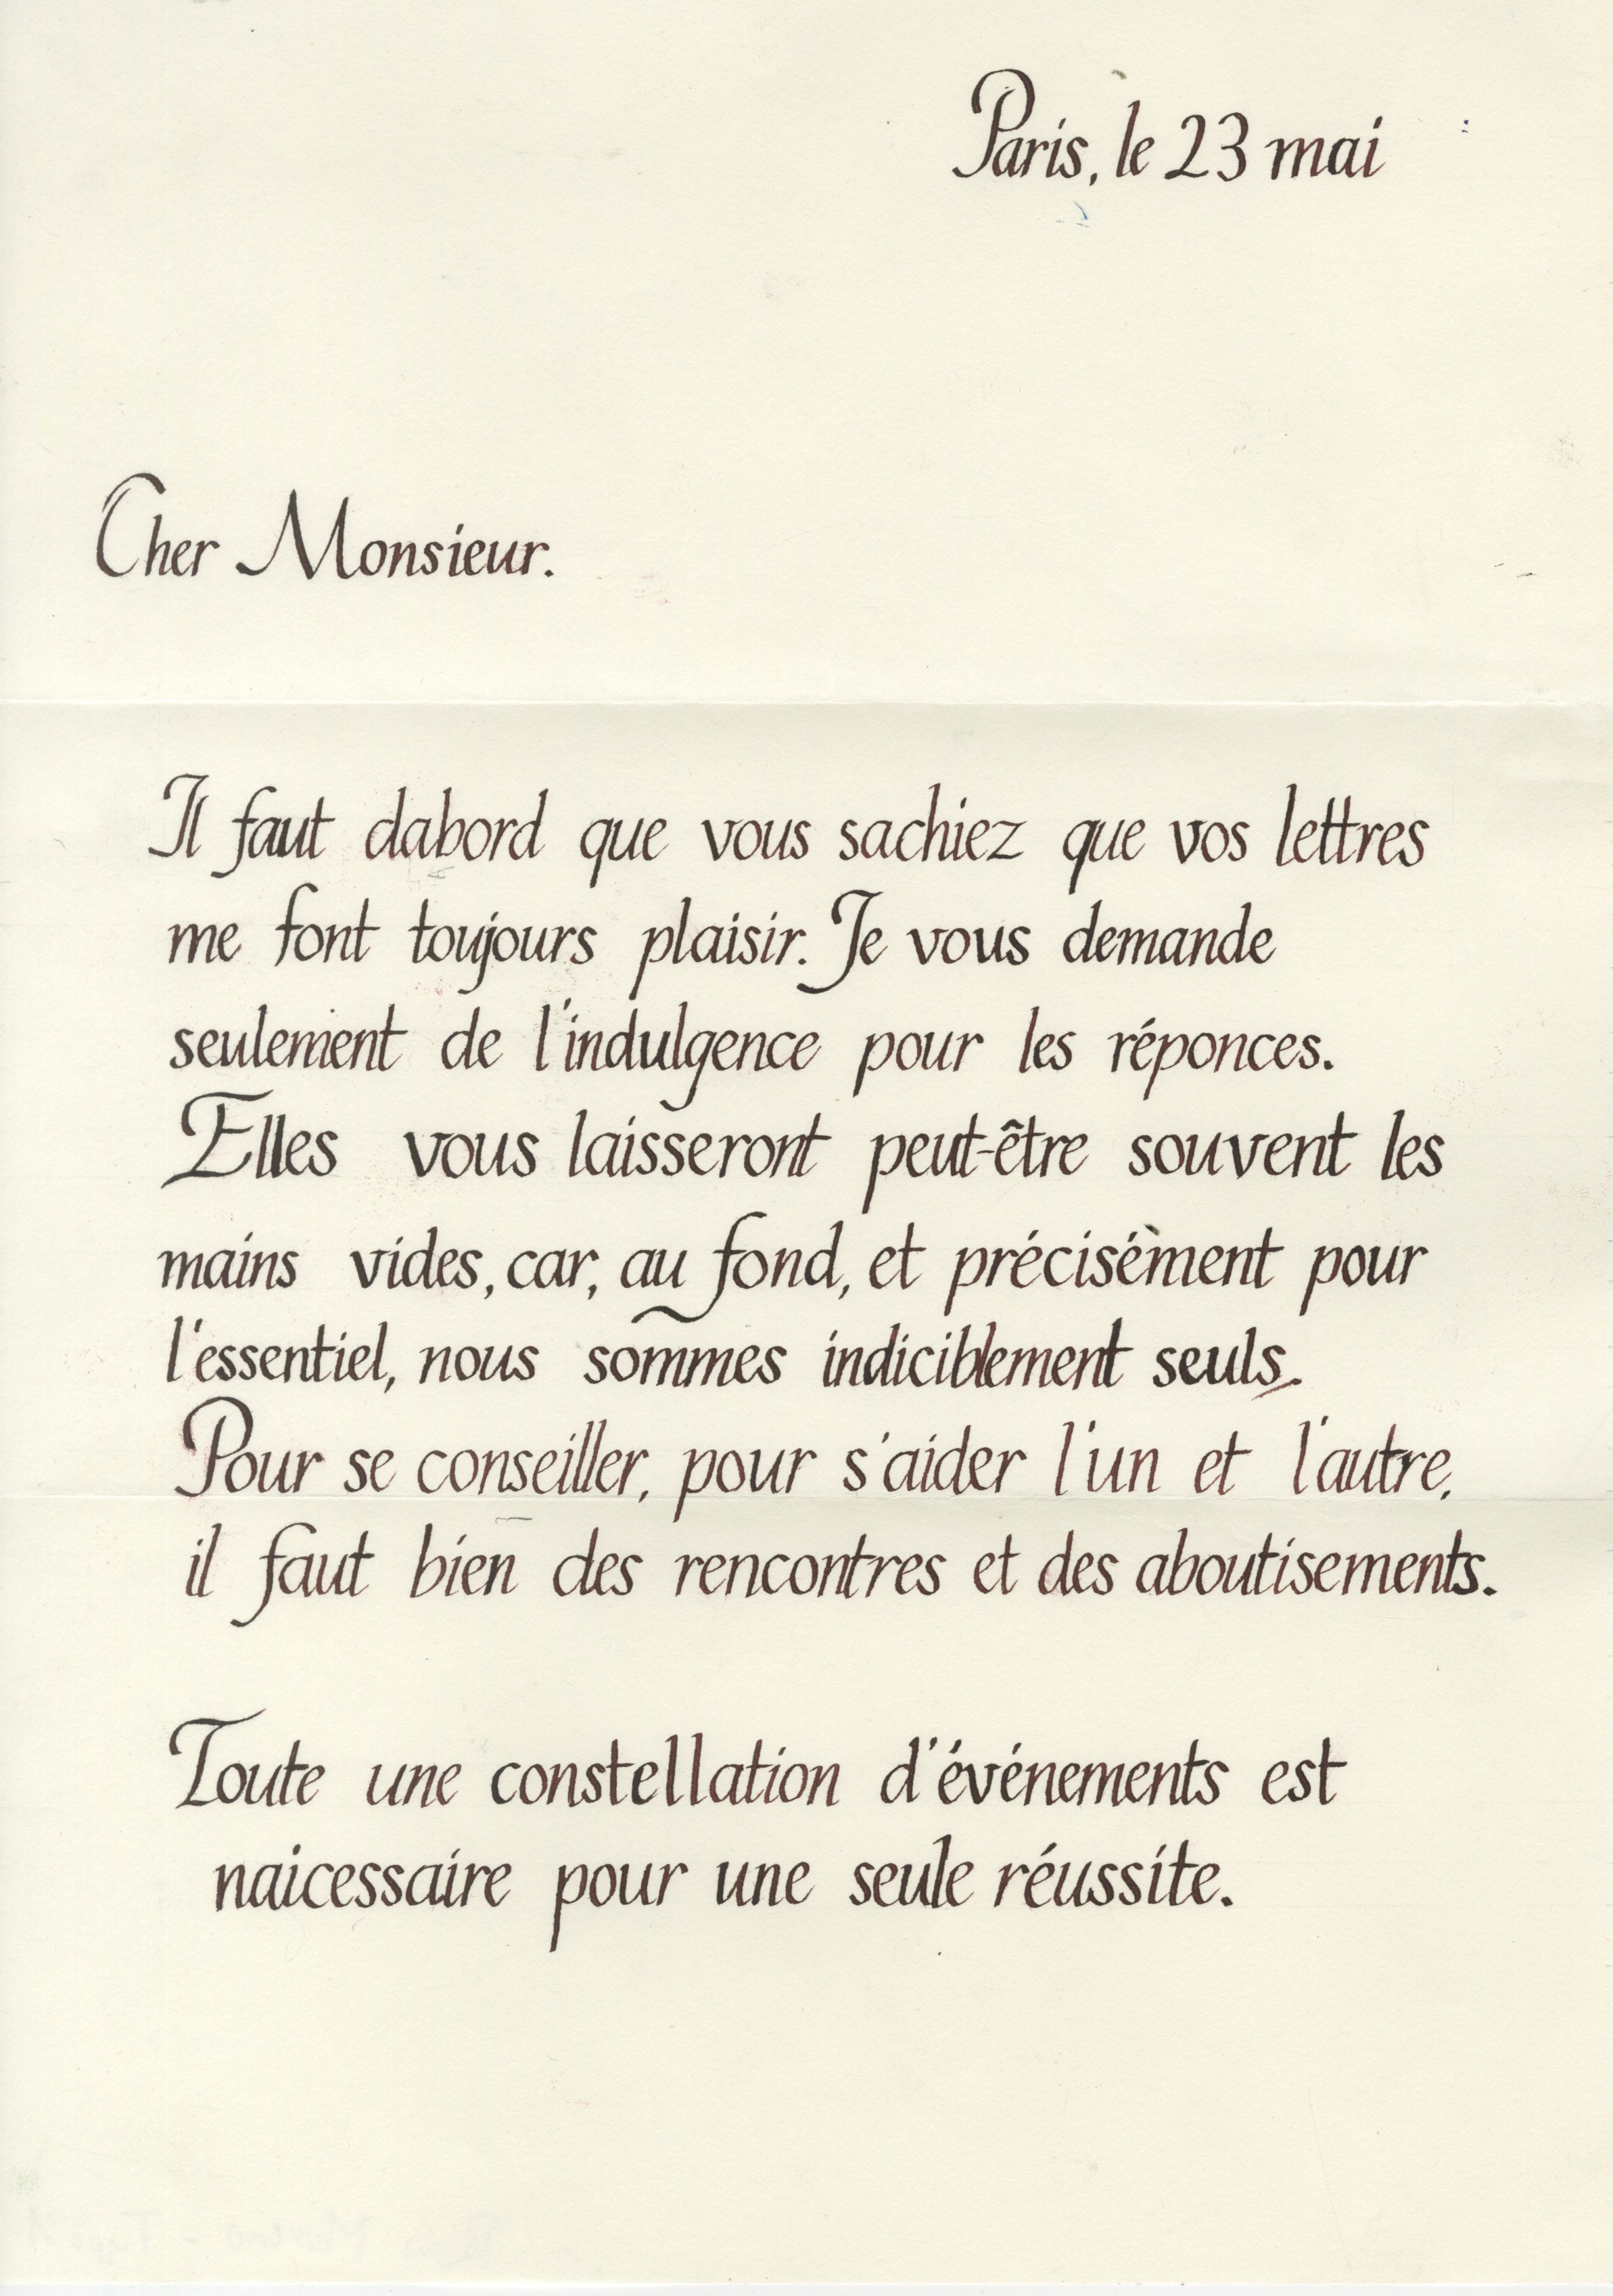 Paris, le 23 mai
Cher Monsieur.
Il faut dabord que vous sachiez que vos lettres
me font toujours plaisir. Je vous demande
seulement de l'indulgence pour les réponces.
Elles vous laisseront peut-être souvent les
mains vides, car, au fond, et précisément pour
l'essentiel, nous sommes indiciblement seuls.
Pour se conseiller, pour s'aider l'un et l'autre,
il faut bien des rencontres et des aboutisements.
Toute une constellation d'événements est
naicessaire pour une seule réussite.